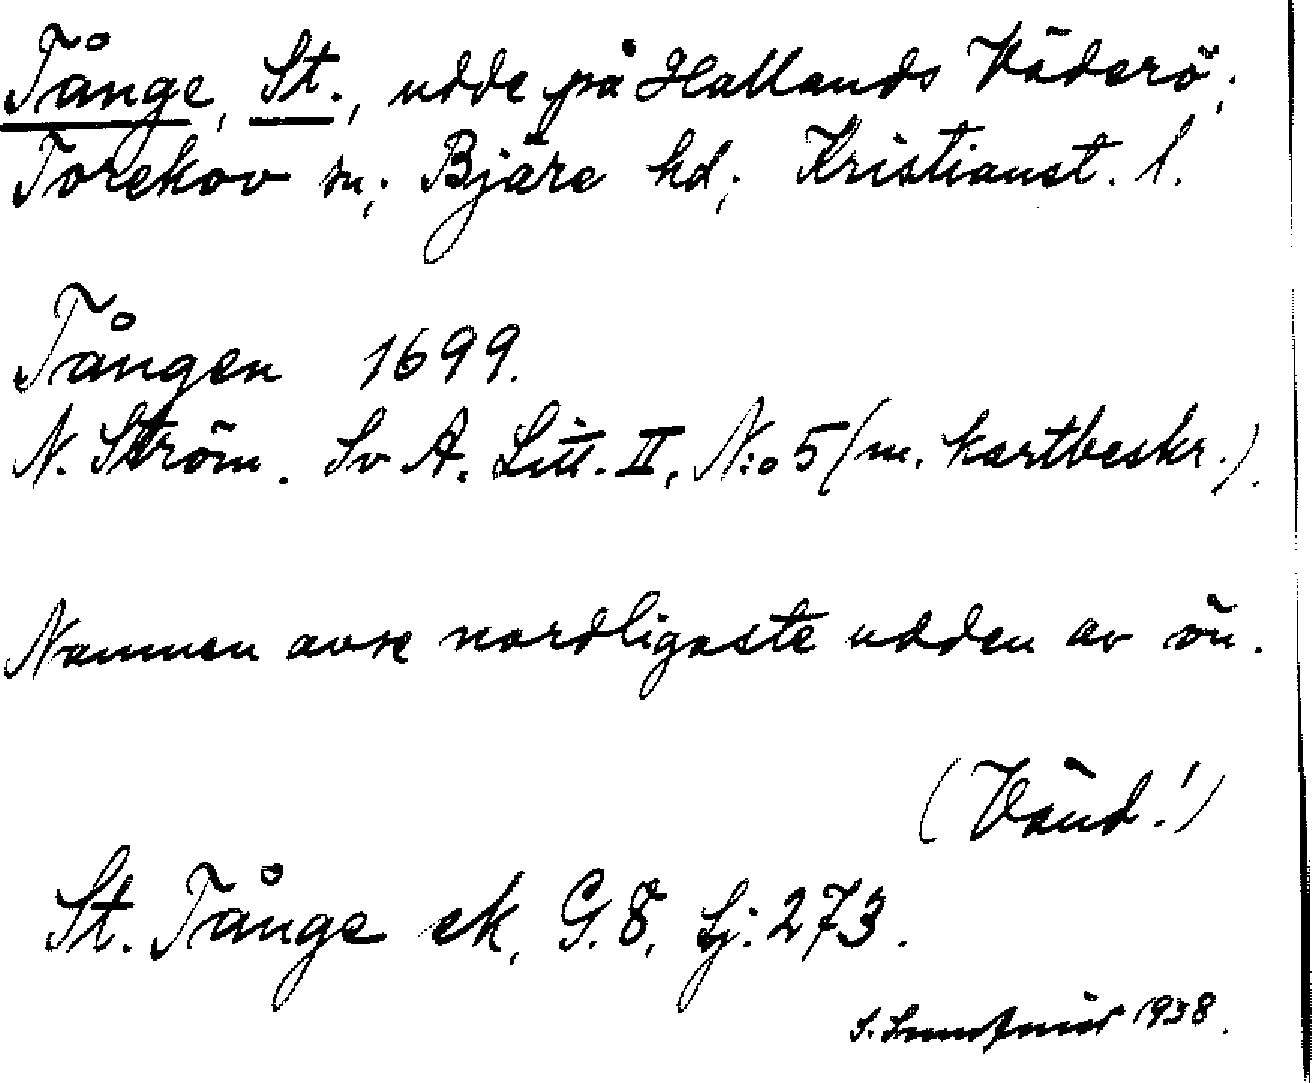 Tånge, St., udde på Hallands Väderö,
Torekov sn, Bjäre hd, Kristianst. l.
Tången 1699.
N. Ström. Sv A. Litt. II, N:o 5 (m. kartbeskr.).
Namnen avse nordligaste udden av ön.
(Vänd!)
St. Tånge ek, G. 8, Lj. 273.
S. 1938.